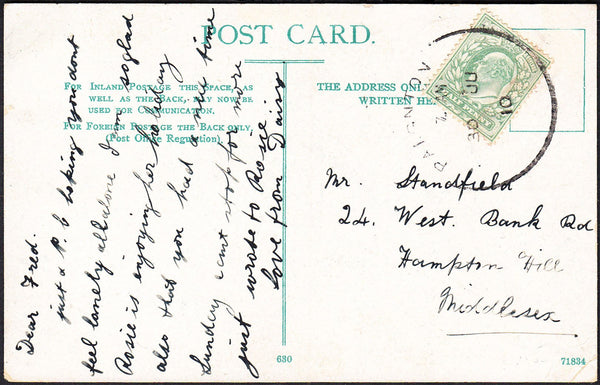 POST CARD.
FOR INLAND POSTAGE THIS SPACE, AS
WELL AS THE BACK, MAY NOW BE
USED FOR COMMUNICATION.
FOR FOREIGN POSTAGE THE BACK ONLY.
(Post Office Regulation).
THE ADDRESS ONLY
WRITTEN HE
Dear Fred.
just a P. C hoping you dont
feel lonely all alone I am so glad
Rosie is enjoying her holiday
also that you had a nice time
Sunday cant stop for more
just wrote to Rosie
love from Daisy
PAIGNTON
30 JU
10
Mr. Standfield
24. West. Bank Rd
Hampton Hill
Middlesex
630
71834